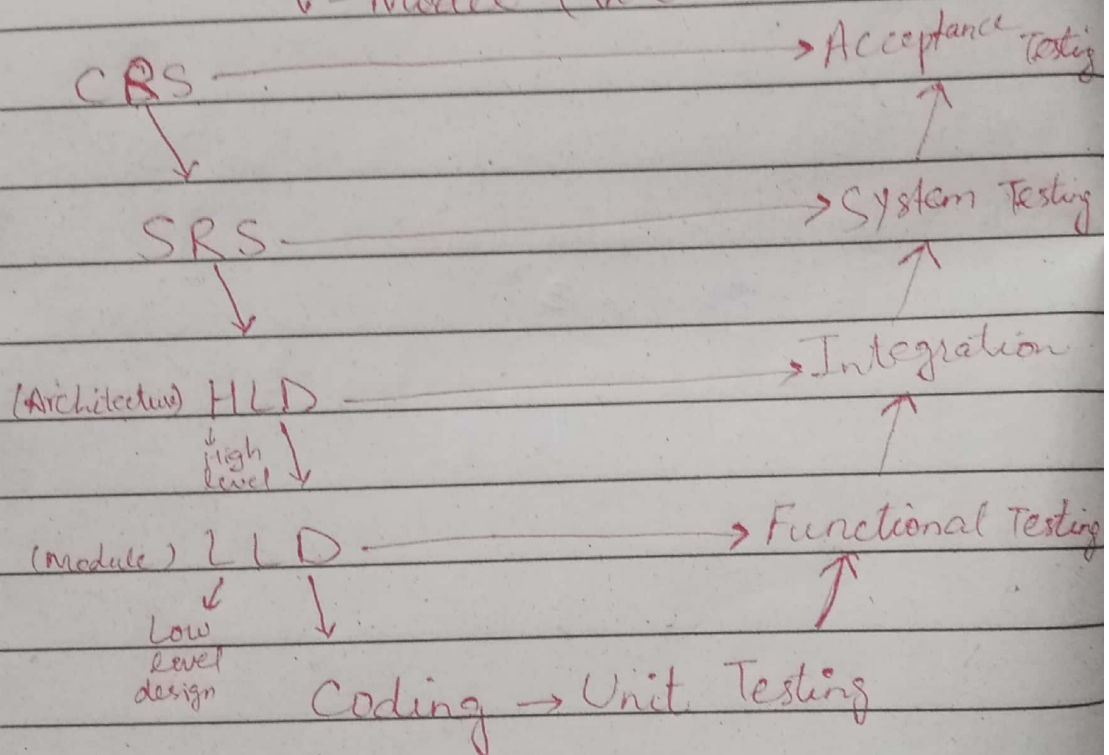 CRS → Acceptance Testing
SRS → System Testing
(Architecture) HLD → Integration
High
level
(Module) LLD → Functional Testing
Low
level
design
Coding → Unit Testing